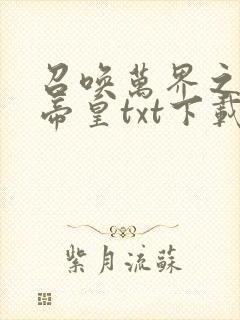 召喚萬界之
帝皇txt下載
紫月流蘇